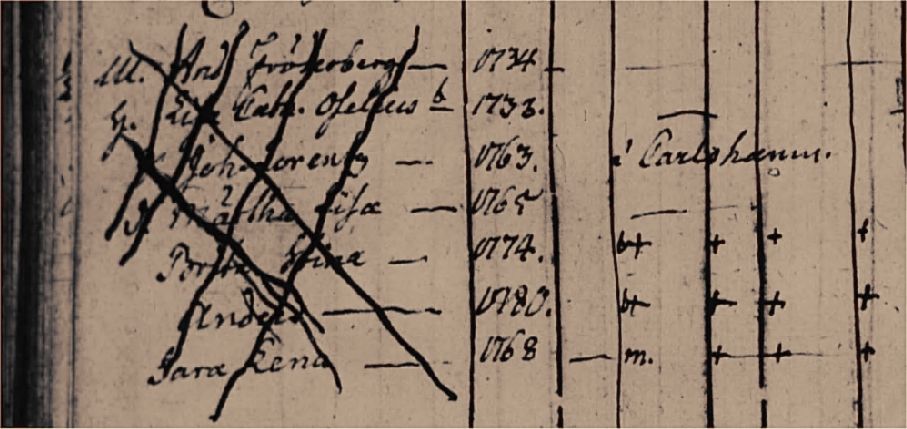 M. And. Fröderberg — 1734 —
H. Lisa Cath. Oselius — 1733.
Joh. Lorentz — 1763. i Carlshamn.
D. Märtha Lisa — 1765
Brita Stina — 1774. b+ + + +
Anders — 1780. b+ + + +
Sara Lena — 1768 — m. + + +